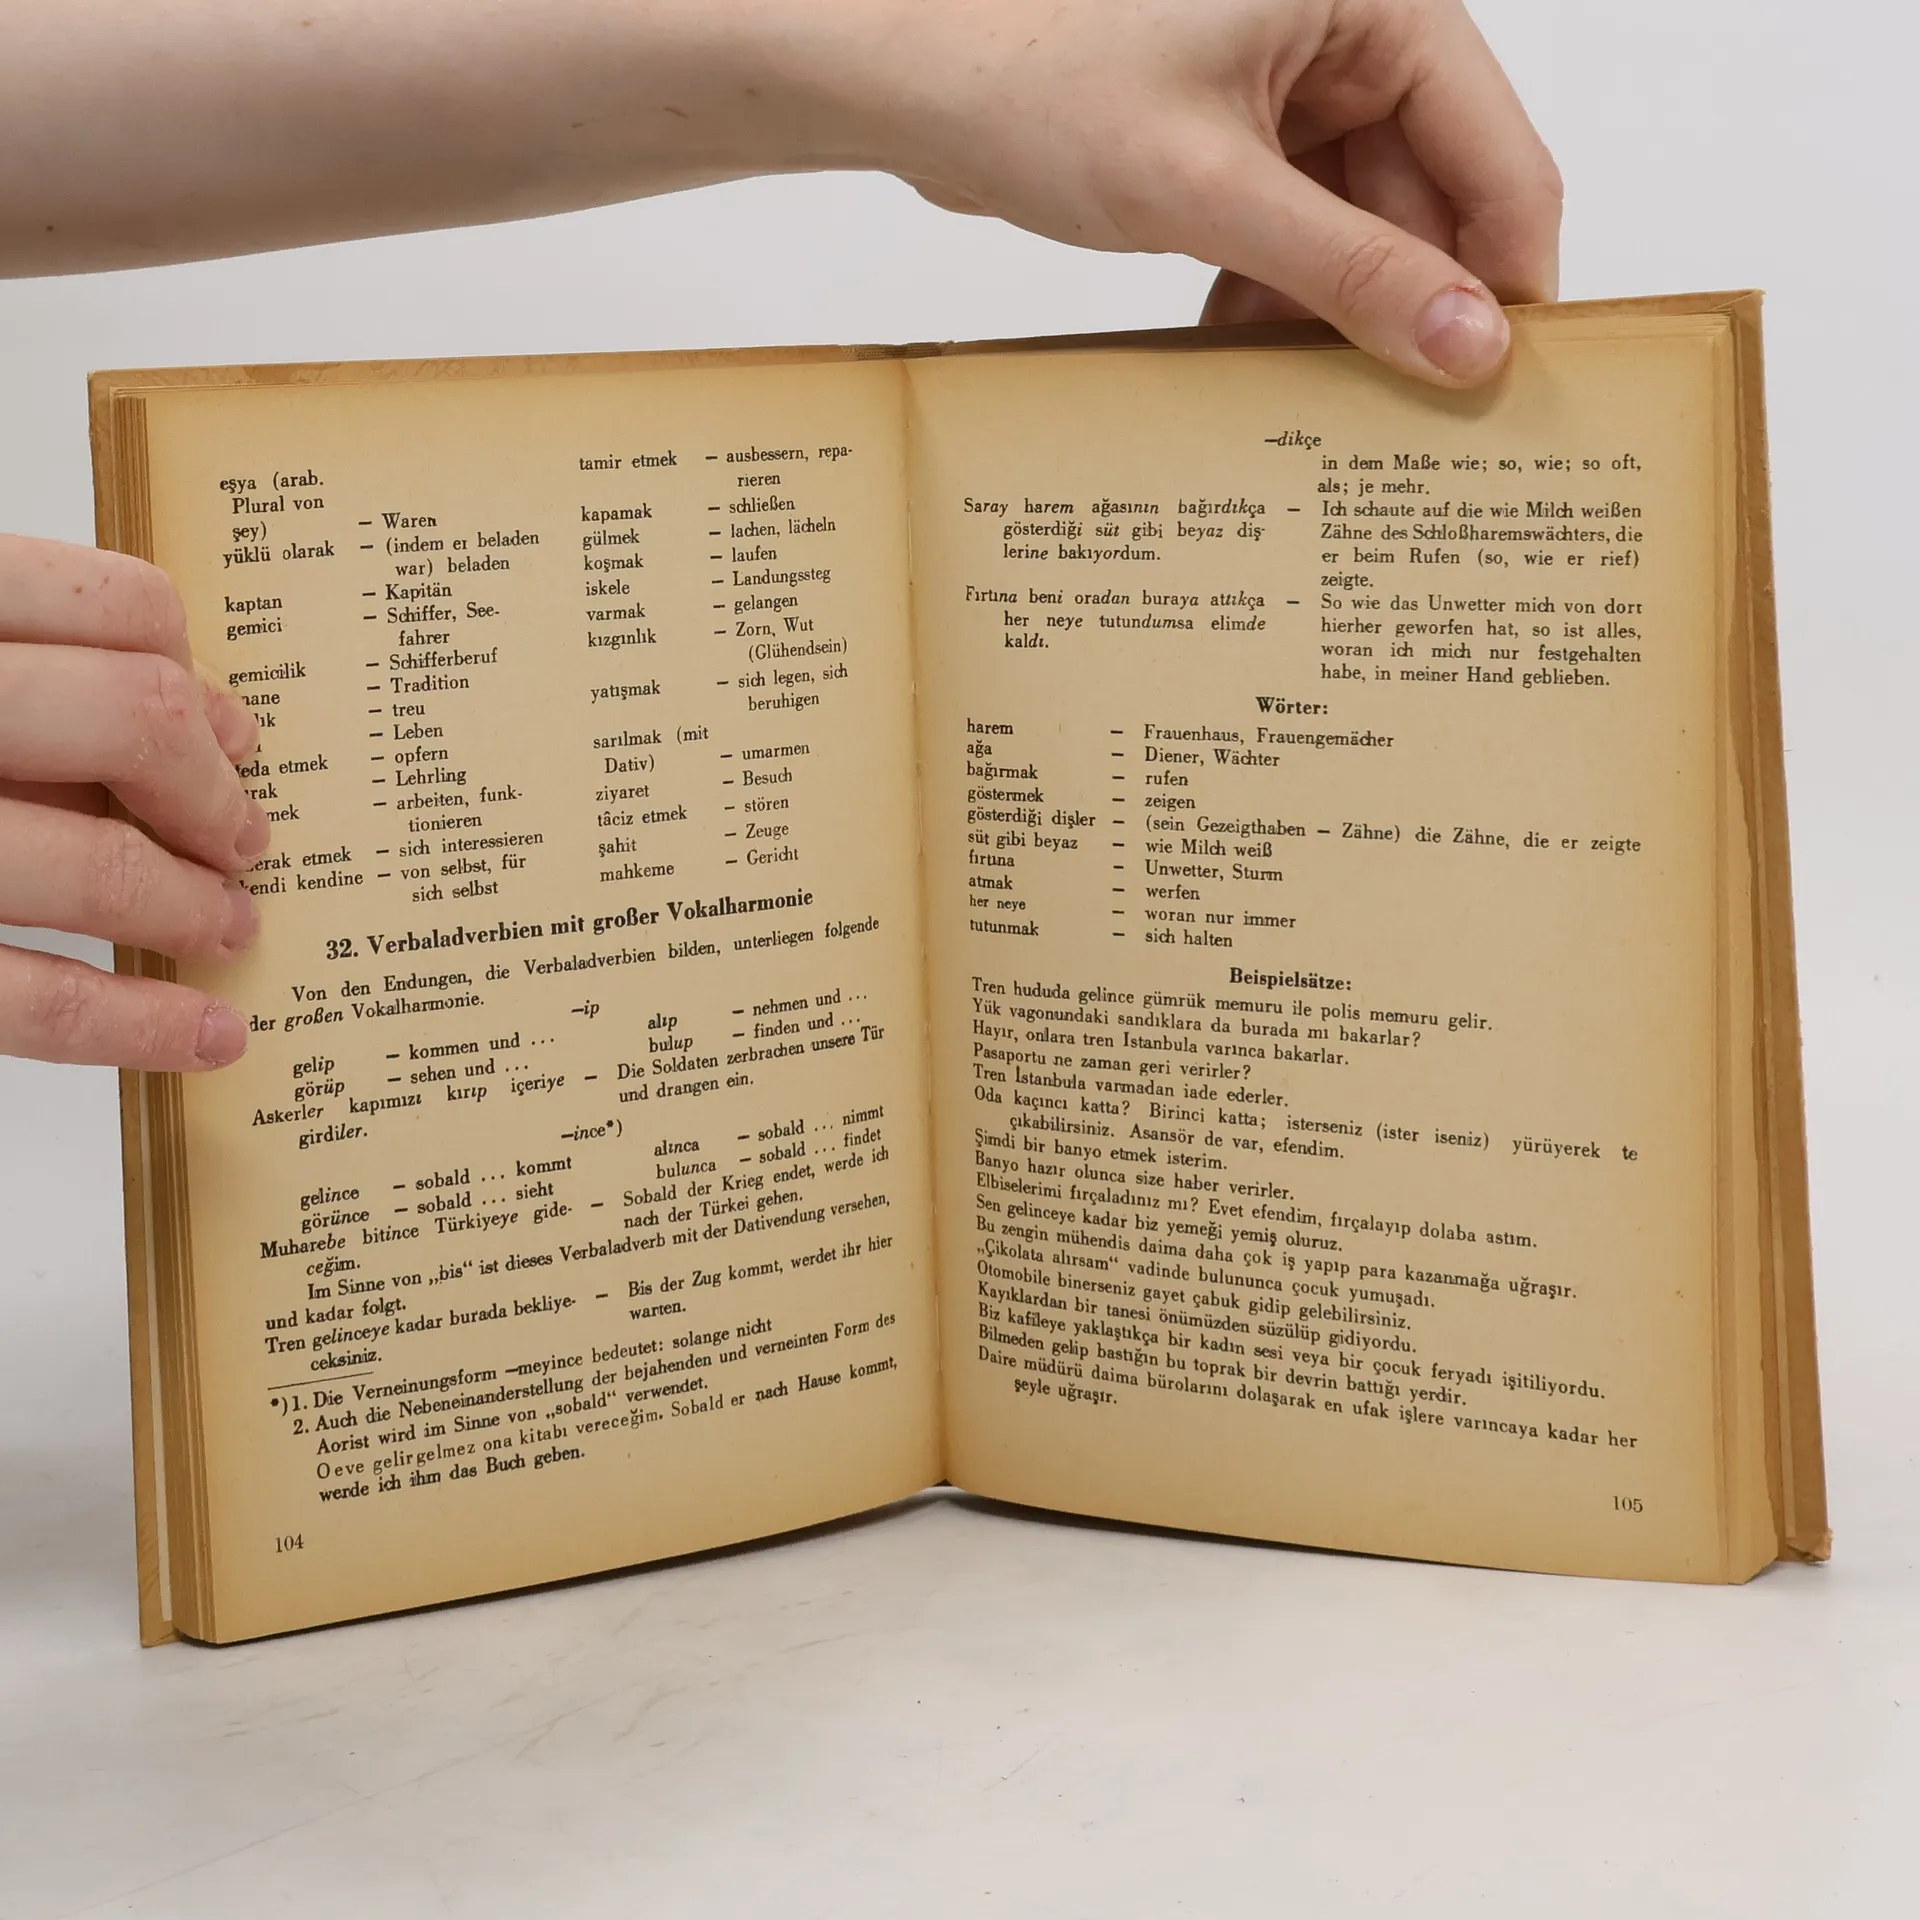 eşya (arab.
Plural von
şey) – Waren
yüklü olarak – (indem er beladen
war) beladen
kaptan – Kapitän
gemici – Schiffer, See-
fahrer
gemicilik – Schifferberuf
– Tradition
– treu
– Leben
feda etmek – opfern
– Lehrling
– arbeiten, funk-
tionieren
merak etmek – sich interessieren
kendi kendine – von selbst, für
sich selbst
tamir etmek – ausbessern, repa-
rieren
kapamak – schließen
gülmek – lachen, lächeln
koşmak – laufen
iskele – Landungssteg
varmak – gelangen
kızgınlık – Zorn, Wut
(Glühendsein)
yatışmak – sich legen, sich
beruhigen
sarılmak (mit
Dativ) – umarmen
ziyaret – Besuch
tâciz etmek – stören
şahit – Zeuge
mahkeme – Gericht
32. Verbaladverbien mit großer Vokalharmonie
Von den Endungen, die Verbaladverbien bilden, unterliegen folgende
der großen Vokalharmonie.
–ip
gelip – kommen und ... alıp – nehmen und ...
görüp – sehen und ... bulup – finden und ...
Askerler kapımızı kırıp içeriye – Die Soldaten zerbrachen unsere Tür
girdiler. und drangen ein.
–ince*)
gelince – sobald ... kommt alınca – sobald ... nimmt
görünce – sobald ... sieht bulunca – sobald ... findet
Muharebe bitince Türkiyeye gide- – Sobald der Krieg endet, werde ich
ceğim. nach der Türkei gehen.
Im Sinne von „bis“ ist dieses Verbaladverb mit der Dativendung versehen,
und kadar folgt.
Tren gelinceye kadar burada bekliye- – Bis der Zug kommt, werdet ihr hier
ceksiniz. warten.
*) 1. Die Verneinungsform –meyince bedeutet: solange nicht
2. Auch die Nebeneinanderstellung der bejahenden und verneinten Form des
Aorist wird im Sinne von „sobald“ verwendet.
O eve gelir gelmez ona kitabı vereceğim. Sobald er nach Hause kommt,
werde ich ihm das Buch geben.
104
–dikçe
in dem Maße wie; so, wie; so oft,
als; je mehr.
Saray harem ağasının bağırdıkça – Ich schaute auf die wie Milch weißen
gösterdiği süt gibi beyaz diş- Zähne des Schloßharemswächters, die
lerine bakıyordum. er beim Rufen (so, wie er rief)
zeigte.
Fırtına beni oradan buraya attıkça – So wie das Unwetter mich von dort
her neye tutundumsa elimde hierher geworfen hat, so ist alles,
kaldı. woran ich mich nur festgehalten
habe, in meiner Hand geblieben.
Wörter:
harem – Frauenhaus, Frauengemächer
ağa – Diener, Wächter
bağırmak – rufen
göstermek – zeigen
gösterdiği dişler – (sein Gezeigthaben – Zähne) die Zähne, die er zeigte
süt gibi beyaz – wie Milch weiß
fırtına – Unwetter, Sturm
atmak – werfen
her neye – woran nur immer
tutunmak – sich halten
Beispielsätze:
Tren hududa gelince gümrük memuru ile polis memuru gelir.
Yük vagonundaki sandıklara da burada mı bakarlar?
Hayır, onlara tren Istanbula varınca bakarlar.
Pasaportu ne zaman geri verirler?
Tren İstanbula varmadan iade ederler.
Oda kaçıncı katta? Birinci katta; isterseniz (ister iseniz) yürüyerek te
çıkabilirsiniz. Asansör de var, efendim.
Şimdi bir banyo etmek isterim.
Banyo hazır olunca size haber verirler.
Elbiselerimi fırçaladınız mı? Evet efendim, fırçalayıp dolaba astım.
Sen gelinceye kadar biz yemeği yemiş oluruz.
Bu zengin mühendis daima daha çok iş yapıp para kazanmağa uğraşır.
„Çikolata alırsam“ vadinde bulununca çocuk yumuşadı.
Otomobile binerseniz gayet çabuk gidip gelebilirsiniz.
Kayıklardan bir tanesi önümüzden süzülüp gidiyordu.
Biz kafileye yaklaştıkça bir kadın sesi veya bir çocuk feryadı işitiliyordu.
Bilmeden gelip bastığın bu toprak bir devrin battığı yerdir.
Daire müdürü daima bürolarını dolaşarak en ufak işlere varıncaya kadar her
şeyle uğraşır.
105